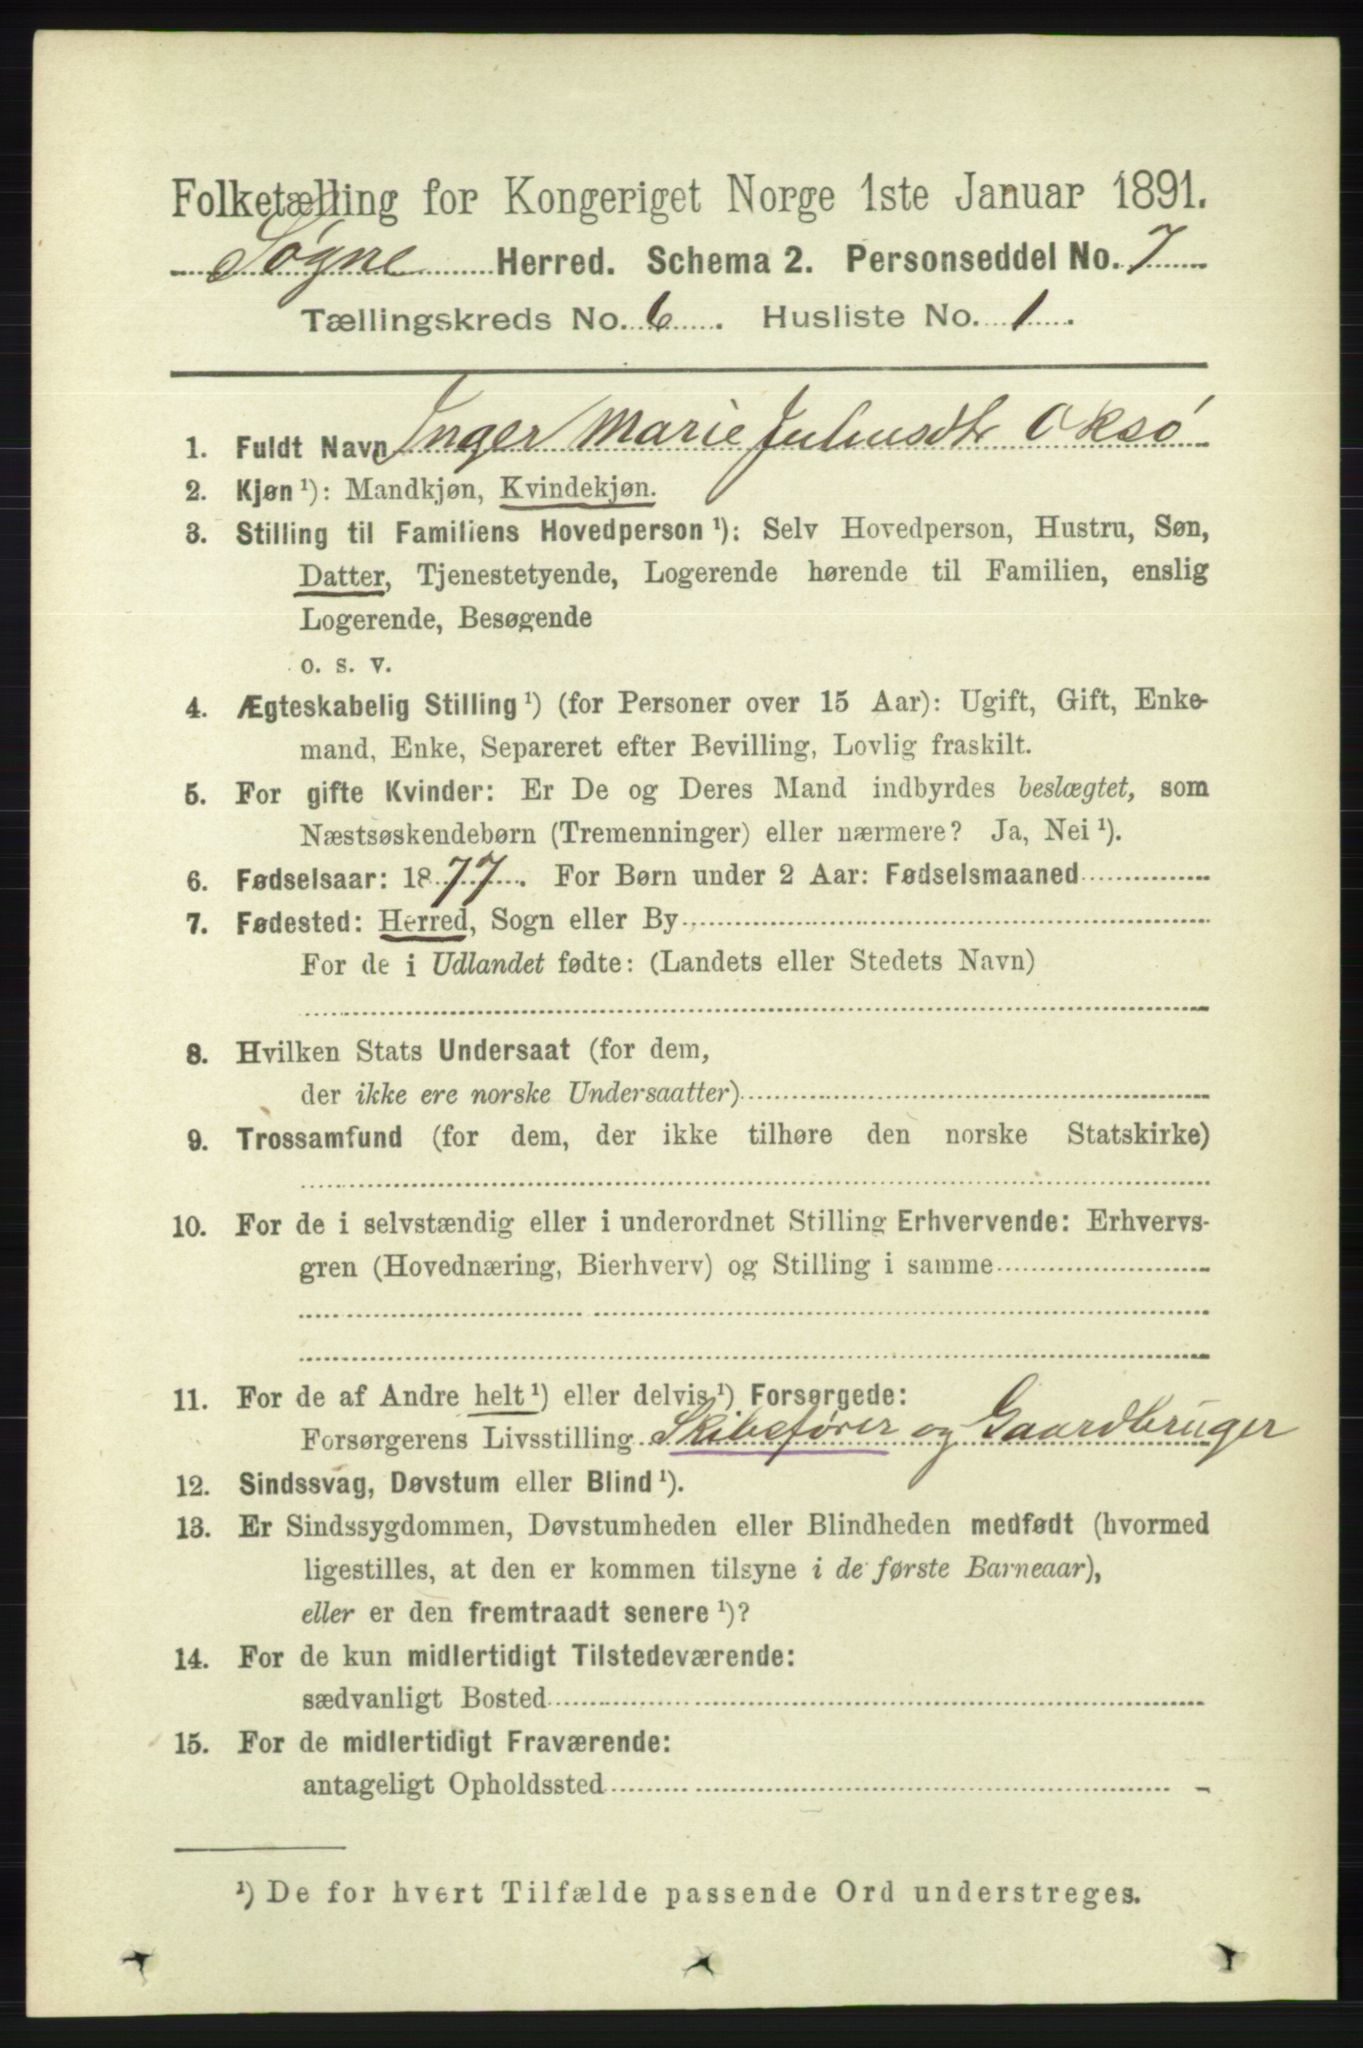 Folketælling for Kongeriget Norge 1ste Januar 1891.
Søgne Herred. Schema 2. Personseddel No. 7
Tællingskreds No. 6. Husliste No. 1.
1. Fuldt Navn Inger Marie Juliusdtr Oksø
2. Kjøn ¹): Mandkjøn, Kvindekjøn.
3. Stilling til Familiens Hovedperson ¹): Selv Hovedperson, Hustru, Søn,
Datter, Tjenestetyende, Logerende hørende til Familien, enslig
Logerende, Besøgende
o. s. v.
4. Ægteskabelig Stilling ¹) (for Personer over 15 Aar): Ugift, Gift, Enke-
mand, Enke, Separeret efter Bevilling, Lovlig fraskilt.
5. For gifte Kvinder: Er De og Deres Mand indbyrdes beslægtet, som
Næstsøskendebørn (Tremenninger) eller nærmere? Ja, Nei ¹).
6. Fødselsaar: 1877. For Børn under 2 Aar: Fødselsmaaned
7. Fødested: Herred, Sogn eller By
For de i Udlandet fødte: (Landets eller Stedets Navn)
8. Hvilken Stats Undersaat (for dem,
der ikke ere norske Undersaatter)
9. Trossamfund (for dem, der ikke tilhøre den norske Statskirke)
10. For de i selvstændig eller i underordnet Stilling Erhvervende: Erhvervs-
gren (Hovednæring, Bierhverv) og Stilling i samme
11. For de af Andre helt ¹) eller delvis ¹) Forsørgede:
Forsørgerens Livsstilling Skibsfører og Gaardbruger
12. Sindssvag, Døvstum eller Blind ¹).
13. Er Sindssygdommen, Døvstumheden eller Blindheden medfødt (hvormed
ligestilles, at den er kommen tilsyne i de første Barneaar),
eller er den fremtraadt senere ¹)?
14. For de kun midlertidigt Tilstedeværende:
sædvanligt Bosted
15. For de midlertidigt Fraværende:
antageligt Opholdssted
¹) De for hvert Tilfælde passende Ord understreges.